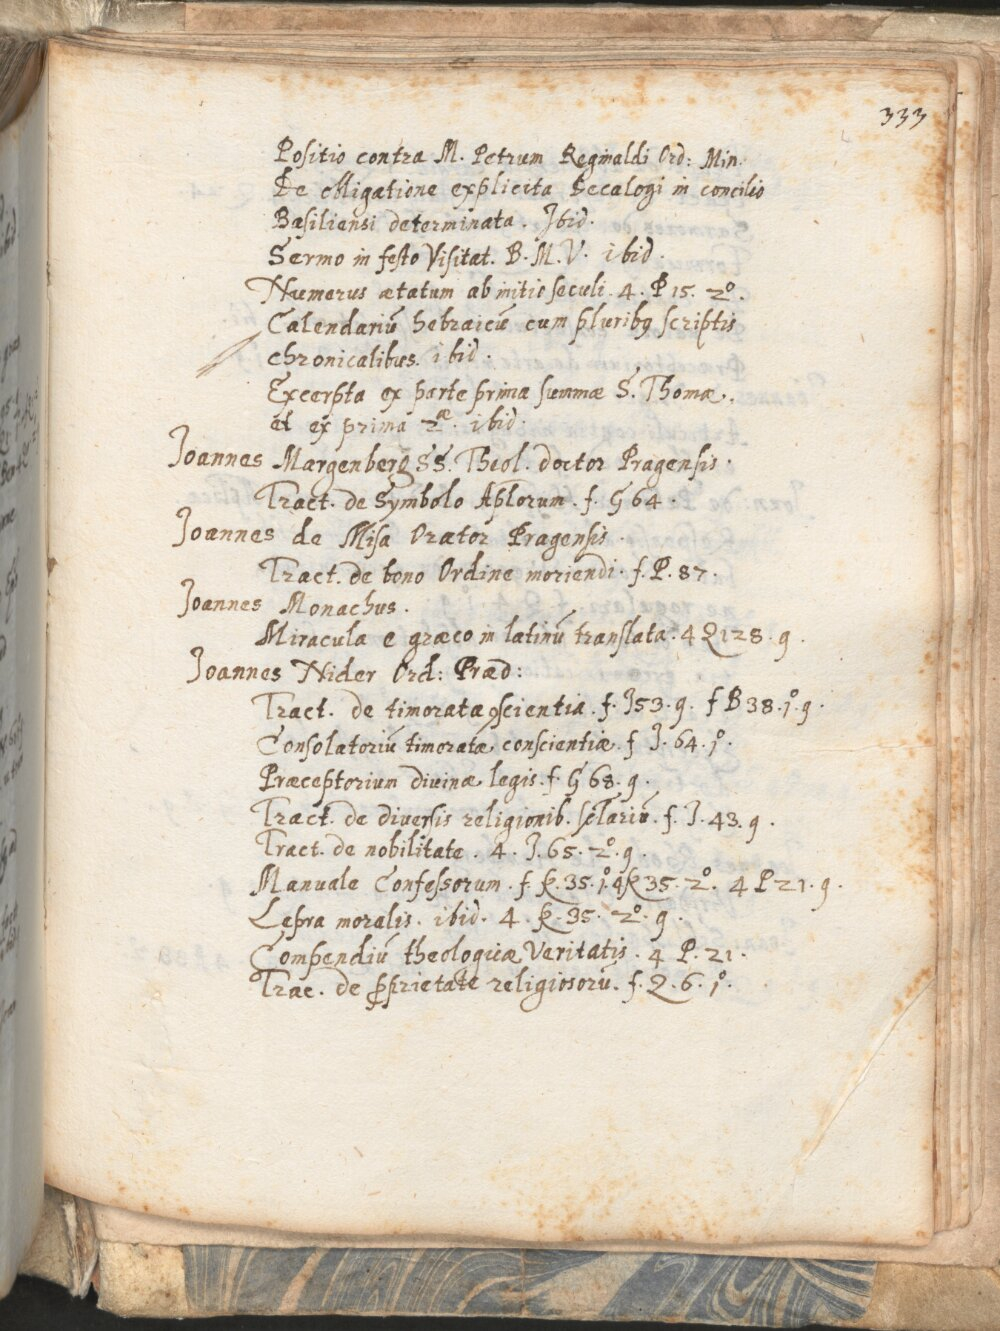 333
Positio contra M. Petrum Reginaldi Ord: Min.
De obligatione explicita Decalogi in concilio
Basiliensi determinata. Ibid.
Sermo in festo Visitat. B. M. V. ibid.
Numerus ætatum ab initio seculi. 4. P 15. 2º.
Calendariũ hebraicũ cum pluribꝫ scriptis
chronicalibus. ibid.
Excerpta ex parte prima summæ S. Thomæ.
et ex prima 2æ. ibid.
Joannes Margenberg SS. Theol. doctor Pragensis.
Tract. de Symbolo Aplorum. f. G 64.
Joannes de Misa Orator Pragensis.
Tract. de bono Ordine moriendi. f. P. 87.
Joannes Monachus.
Miracula e græco in latinũ translata. 4 Q 128. 9.
Joannes Nider Ord: Præd:
Tract. de timorata ꝯscientia. f. I 53. 9. f B 38. 1º. 9.
Consolatoriũ timoratæ conscientiæ. f I. 64. 1º.
Præceptorium divinæ legis. f G 68. 9.
Tract. de diversis religionib. sclariũ. f. I. 43. 9.
Tract. de nobilitate. 4. I. 65. 2º. 9.
Manuale Confessorum. f. K. 35. 1º. 4 K 35. 2º. 4 P 21. 9.
Lepra moralis. ibid. 4. K. 35. 2º. 9.
Compendiũ theologicæ Veritatis. 4 P. 21.
Trac. de ꝓprietate religiosorũ. f. Q. 6. 1º.